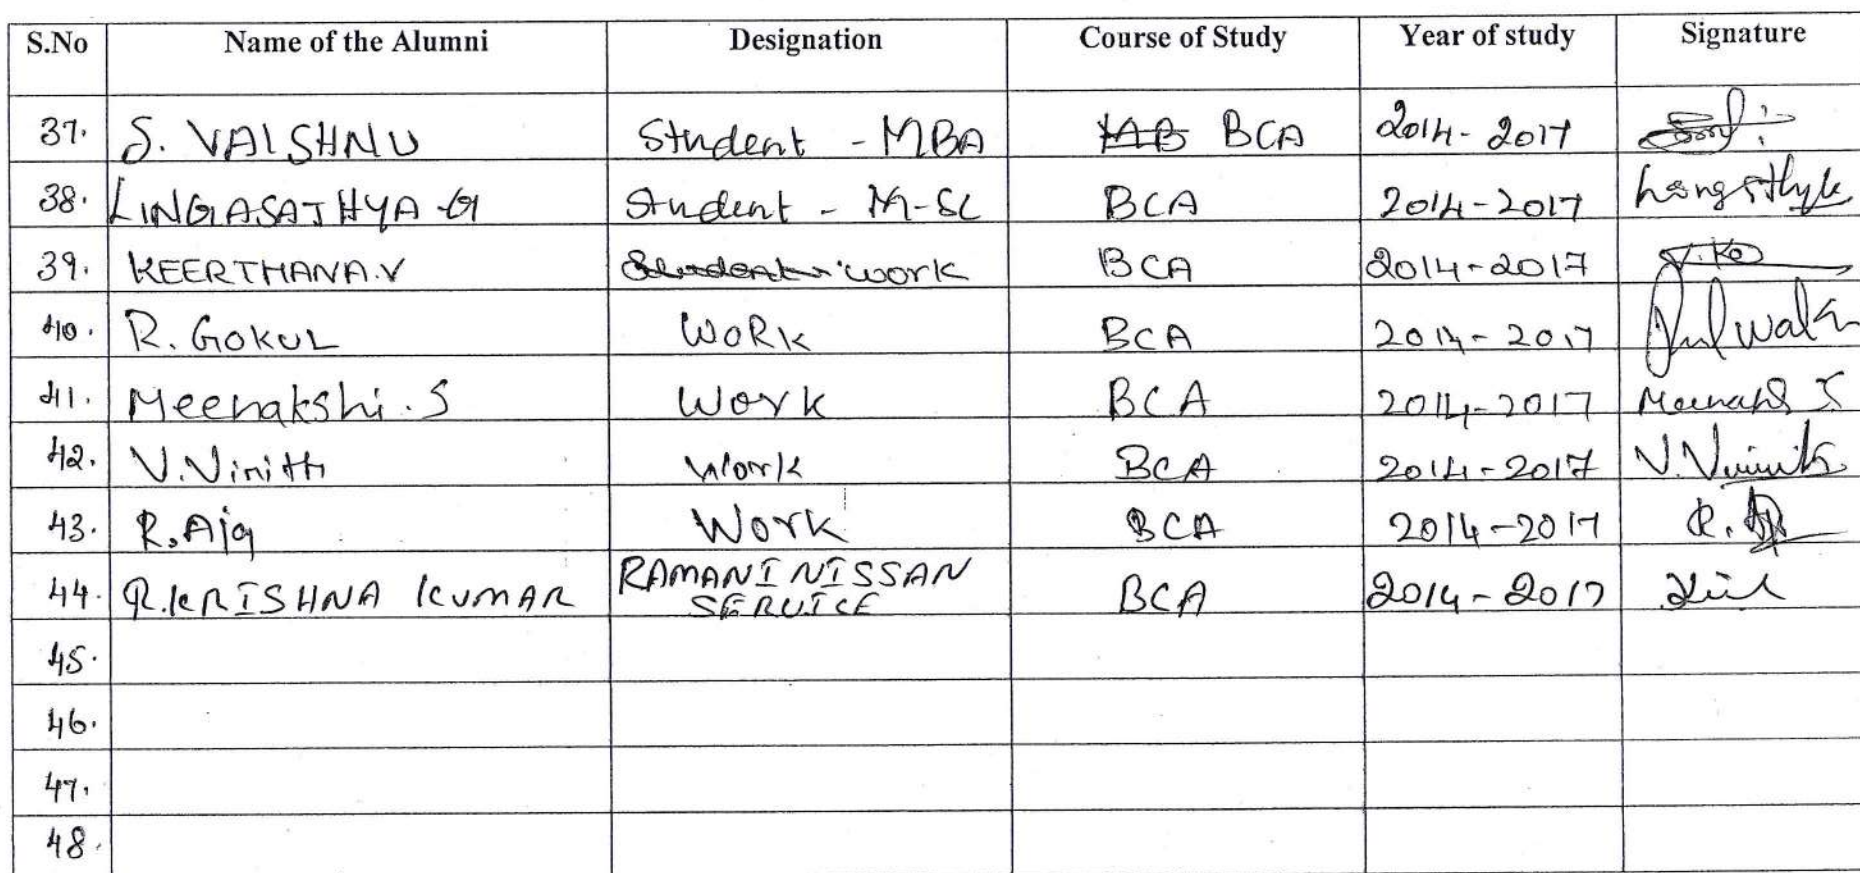 S.No Name of the Alumni Designation Course of Study Year of study Signature
37. S. VAISHNU Student - MBA BCA 2014-2017
38. LINGASATHYA-G Student - M-SC BCA 2014-2017
39. KEERTHANA.V work BCA 2014-2017
40. R. GOKUL WORK BCA 2014-2017
41. Meenakshi.S Work BCA 2014-2017
42. V.Vinith Work BCA 2014-2017 V.Vinith
43. R.Ajq Work BCA 2014-2017
44. R.KRISHNA KUMAR RAMANI NISSAN SERVICE BCA 2014-2017
45.
46.
47.
48.